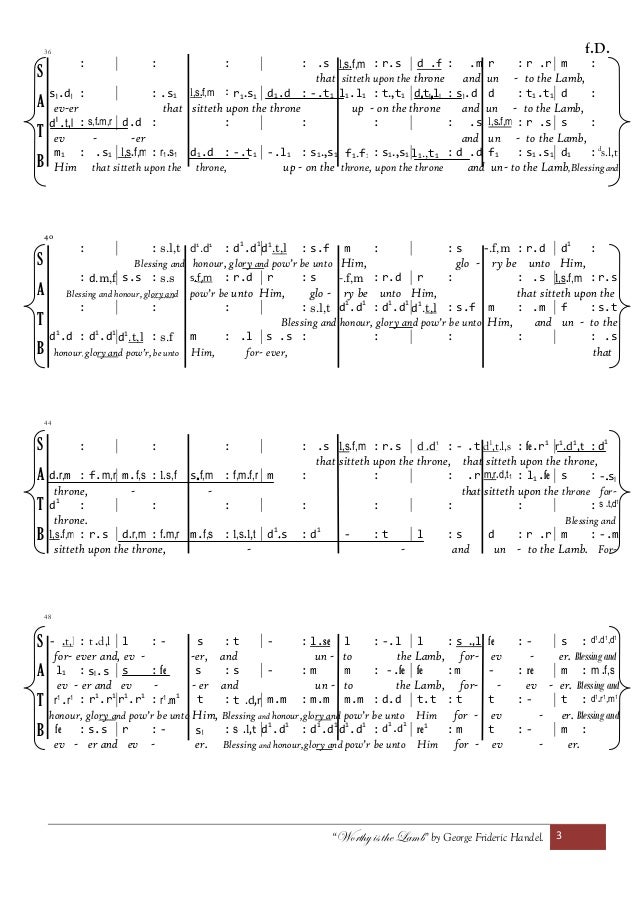 f.D.
36
: | : : | : .s l,s.f,m : r.s | d .f : .m r : r .r | m :
S
that sitteth upon the throne and un - to the Lamb,
s₁.d₁ | : .s₁ l,s.f,m : r₁.s₁ | d₁.d : -.t₁ l₁.l₁ : t,,t₁ | d,t₁,l₁ : s₁.d d : t₁.t₁ | d
A
ev-er that sitteth upon the throne up - on the throne and un - to the Lamb,
d¹.t,l : s,f.m,r | d.d : : | : : | : .s l,s.f,m : r .s | s :
T
ev - -er and un - to the Lamb,
B m₁ : .s₁ | l,s.f,m : r₁.s₁ d₁.d : -.t₁ | -.l₁ : s₁.,s₁ f₁.f₁ : s₁.,s₁ | l₁..t₁ : d .d f₁ : s₁.s₁ | d₁ : ᵈs.l,t
Him that sitteth upon the throne, up - on the throne, upon the throne and un - to the Lamb, Blessing and
40
S : | : s.l,t d¹.d¹ : d¹.d¹ | d¹.t,l : s.f m : | : s -.f,m : r.d | d¹ :
Blessing and honour, glory and pow'r be unto Him, glo - ry be unto Him,
A : d.m,f | s.s : s.s s.f,m : r.d | r : s -.f,m : r.d | r : : .s | l,s.f,m : r.s
Blessing and honour, glory and pow'r be unto Him, glo - ry be unto Him, that sitteth upon the
T : | : : | : s.l,t d¹.d¹ : d¹.d¹ | d¹.t,l : s.f m : .m | f : s.t
Blessing and honour, glory and pow'r be unto Him, and un - to the
B d¹.d : d¹.d¹ | d¹.t,l : s.f m : .l | s .s : : | : : | : .s
honour, glory and pow'r, be unto Him, for- ever, that
44
S : | : : | : .s l,s.f,m : r.s | d.d¹ : -.t d¹,t.l,s : fe.r¹ | r¹.d¹,t : d¹
that sitteth upon the throne, that sitteth upon the throne,
A d.r,m : f.m,r | m.f,s : l.s,f s.f,m : f,m.f,r | m : : | : .r m,r.d,t₁ : l₁.fe | s : -.s₁
throne, - - that sitteth upon the throne for-
T d¹ : | : : | : : | : : | : s.t,d¹
throne. Blessing and
B l,s.f,m : r.s | d.r,m : f.m,r m.f,s : l.s,l,t | d¹.s : d¹ - : t | l : s d : r .r | m : -.m
sitteth upon the throne, - - and un - to the Lamb. For-
48
S - .t,l : t.d,l | l : - s : t | - : l.se l : -.l | l : s.,l fe : - | s : d¹.d¹,d¹
for- ever and, ev - -er, and un - to the Lamb, for- ev - er. Blessing and
A l₁ : s₁.s | s : fe s : s | - : m m : -.fe | fe : m - : - | re : m : m.f,s
ev - er and ev - - er and un - to the Lamb, for - - ev - er. Blessing and
T r¹.r¹ : r¹.r¹ | r¹.r¹ : r¹.m¹ t : t.d,r | m.m : m.m m.m : d.d | t.t : t t : - | t : d¹.r¹,m¹
honour, glory and pow'r be unto Him, Blessing and honour, glory and pow'r be unto Him for - ev - er. Blessing and
B fe : s.s | r : - s₁ : s.l,t | d¹.d¹ : d¹.d¹ d¹.d¹ : d¹.d¹ | re¹ : m t : - | m :
ev - er and ev - er. Blessing and honour, glory and pow'r be unto Him for - ev - er.
"Worthy is the Lamb" by George Frideric Handel.
3